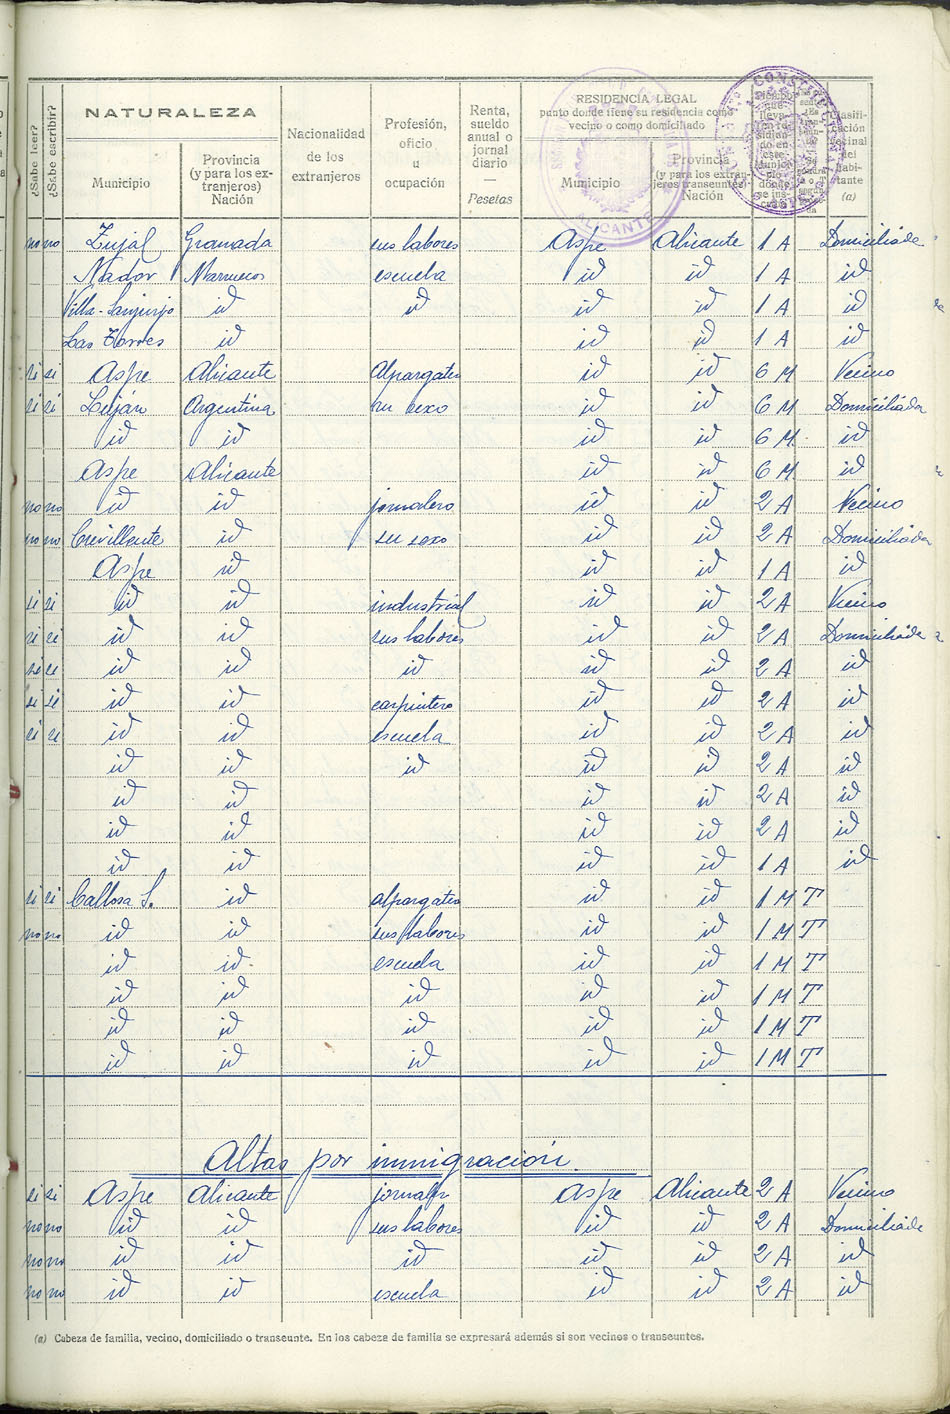 ¿Sabe leer?
¿Sabe escribir?
NATURALEZA
Municipio
Provincia
(y para los ex-
tranjeros)
Nación
Nacionalidad
de los
extranjeros
Profesión,
oficio
u
ocupación
Renta,
sueldo
anual o
jornal
diario
—
Pesetas
RESIDENCIA LEGAL
punto donde tiene su residencia como
vecino o como domiciliado
Municipio
Provincia
(y para los extran-
jeros transeuntes)
Nación
(a)
ALICANTE
no no Zujal Granada sus labores Aspe Alicante 1 A Domiciliada
Nador Marruecos escuela id id 1 A id
Villa-Sanjurjo id id id id 1 A id
Las Torres id id id 1 A id
si si Aspe Alicante Alpargater id id 6 M Vecino
si si Argentina su sexo id id 6 M Domiciliada
id id id id 6 M. id
Aspe Alicante id id 6 M id
no no id id jornalero id id 2 A Vecino
no no Crevillente id su sexo id id 2 A Domiciliada
Aspe id id id 1 A id
si si id id industrial id id 2 A Vecino
si si id id sus labores id id 2 A Domiciliada
si si id id id id id 2 A id
si si id id carpintero id id 2 A id
si si id id escuela id id 2 A id
id id id id id 2 A id
id id id id 2 A id
id id id id 2 A id
id id id id 1 A id
si si Callosa S. id alpargater id id 1 M T
no no id id sus labores id id 1 M T
id id. escuela id id 1 M T
id id id id id 1 M T
id id id id id 1 M T
id id id id id 1 M T
Altas por inmigración
si si Aspe Alicante Aspe Alicante 2 A Vecino
no no id id sus labores id id 2 A Domiciliada
no no id id id id id 2 A id
no no id id escuela id id 2 A id
(a) Cabeza de familia, vecino, domiciliado o transeunte. En los cabeza de familia se expresará además si son vecinos o transeuntes.